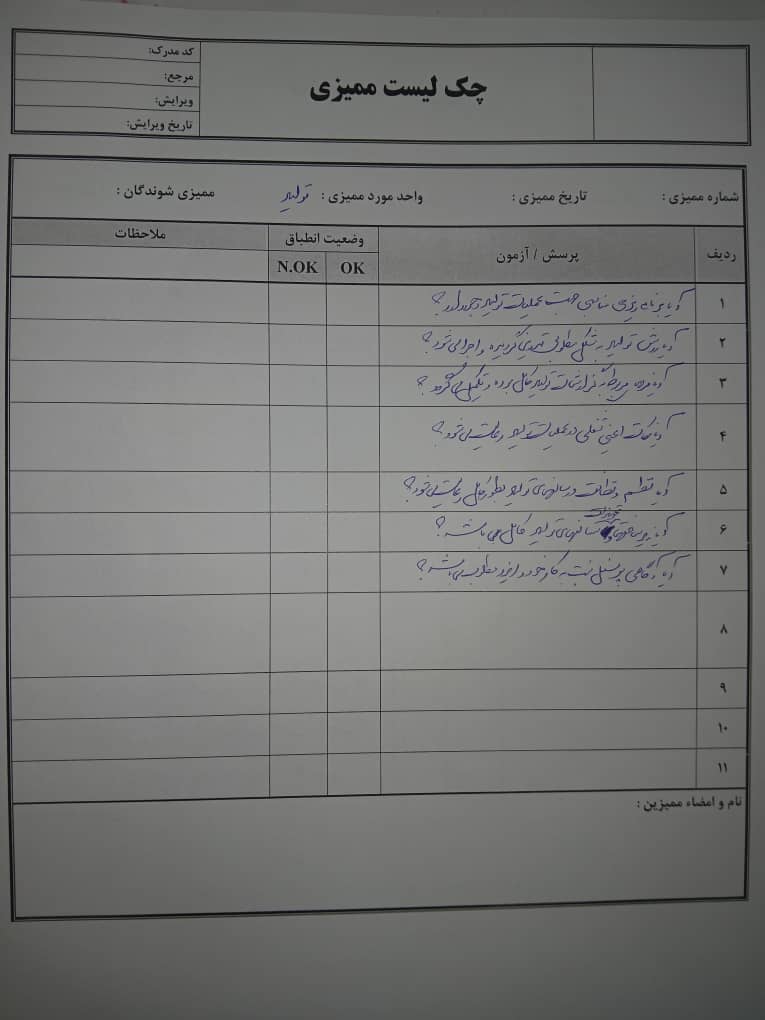 کد مدرک:
مرجع:
ویرایش:
تاریخ ویرایش:
چک لیست ممیزی
شماره ممیزی :
تاریخ ممیزی :
واحد مورد ممیزی : تولید
ممیزی شوندگان :
ردیف
پرسش / آزمون
وضعیت انطباق
ملاحظات
OK
N.OK
۱ آیا برنامه ریزی مناسبی جهت عملیات تولید وجود دارد ؟
۲ آیا روش تولید به شکل مطلوبی تدوین گردیده و اجرا می شود ؟
۳ آیا فرم های مربوط به گزارشات تولید کامل بوده و تکمیل می گردد ؟
۴ آیا نکات ایمنی شغلی در عملیات تولید رعایت می شود ؟
۵ آیا نظم و نظافت در سالنهای تولید بطور کامل رعایت می شود ؟
۶ آیا تجهیزات سالنهای تولید کامل می باشد ؟
۷ آیا آگاهی پرسنل نسبت به کار خود در این واحد مطلوب می باشد ؟
۸
۹
۱۰
۱۱
نام و امضاء ممیزین :